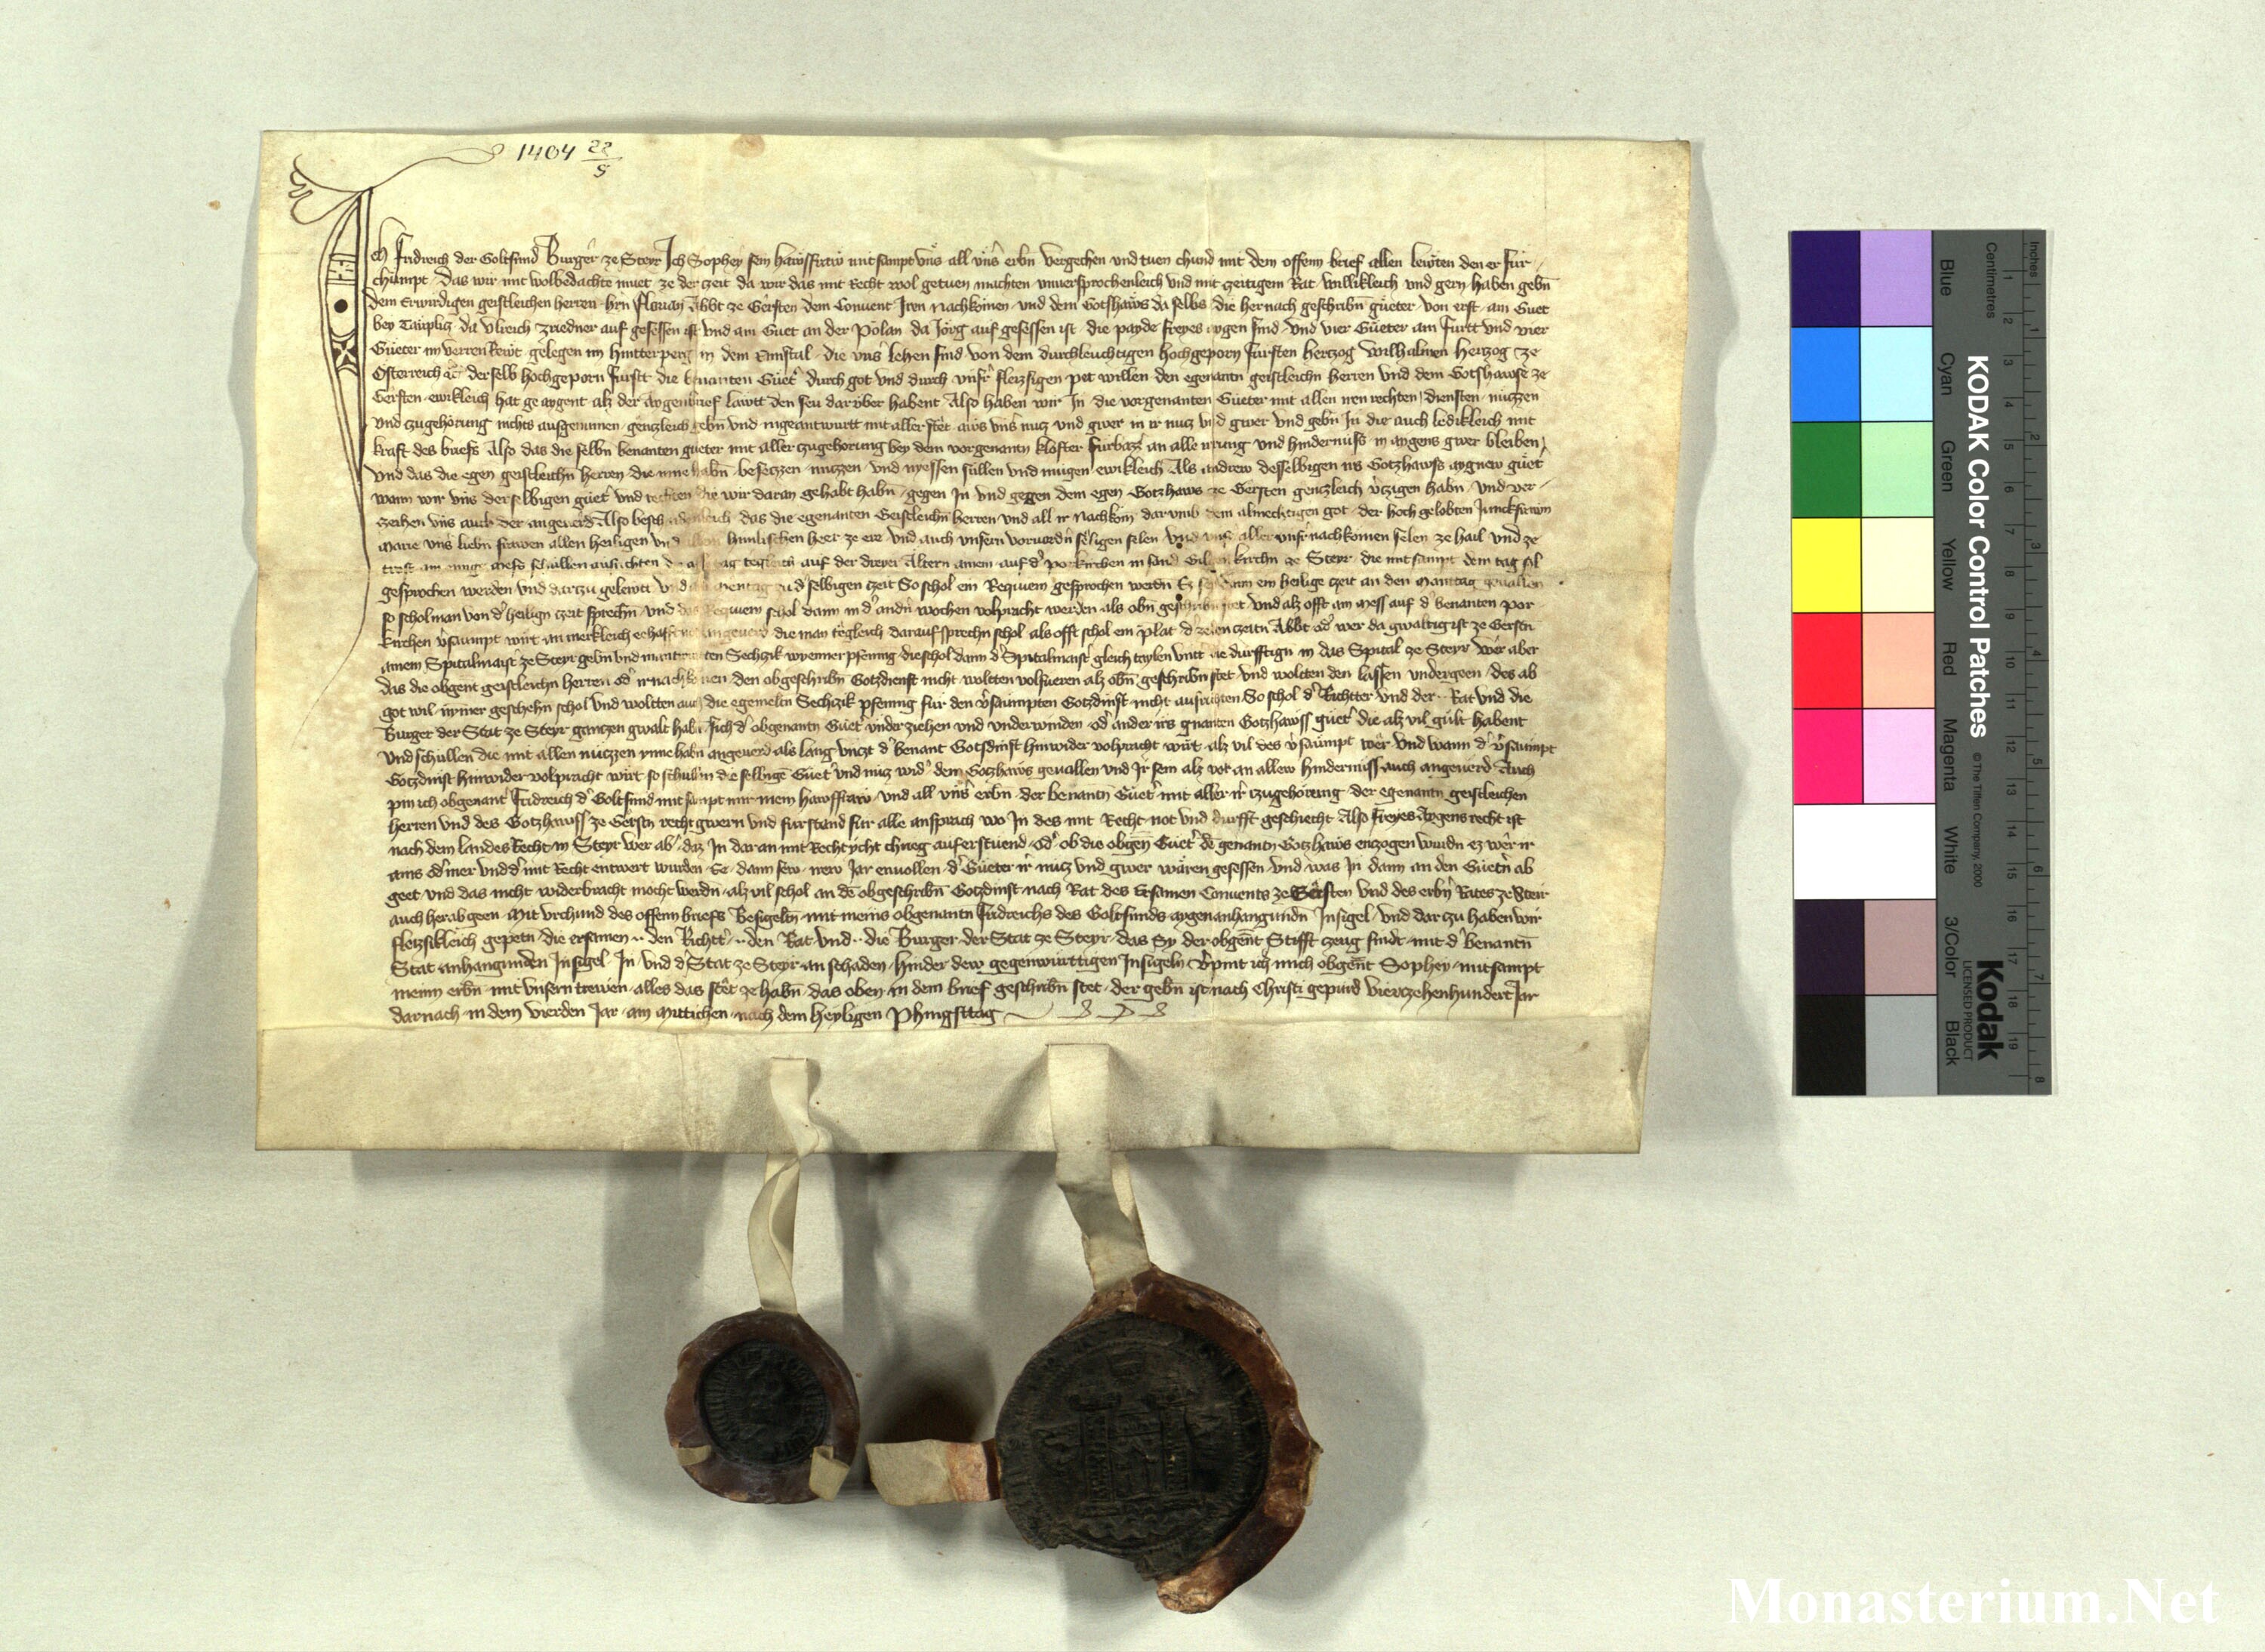 1404 22/5
Ich Fridreich der Goltsmid Burger ze Steyr Ich Sophey sein hawsfraw mitsampt uns all uns erbn vergechen und tuen chund mit dem offenn brief allen lewten den er fur
chumpt das wir mit wolbedachtē muet ze der zeit da wir das mit Recht wol getuen machten unversprochenleich und mit zeitigem Rat willikleich und gern haben gebn
dem Erwirdigen geistleichen herren hrn Florian Abbt ze Gersten dem Convent Iren nachkomen und dem Gotshaws da selbs die hernach geschribn gueter von erst am Guet
bey Taupliz da Ulreich Zriedner auf gesessen ist und am Guet an der Polan da Jorg auf gesessen ist die payde freyes aygen sind und vier Gueter am furtt und vier
Gueter im verren Rewt gelegen im Hintterperg in dem Ennstal die uns lehen sind von dem durchleuchtigen hochgeporn Fursten Herczog Wilhalmen Herczog ze
Osterreich derselb hochgeporn Furst die benanten Guet durch got und durch unsr fleizzigen pet willen den egenantn geistleichn herren und dem Gotshawse ze
Gersten ewikleich hat ge aygent alz der aygenbrief lawtt den seu daruber habent Also haben wir In die vorgenanten Gueter mit allen iren rechten diensten nuczen
und zugehorung nichts ausgenumen genczleich gebn und ingeantwurtt mit aller stet aus uns nucz und gwer in ir nucz und gwer und gebn In die auch ledikleich mit
kraft des briefs Also das die selbn benanten gueter mit aller zugehorung bey dem vorgenantn kloster furbazz an alle irrung und hindernuss in aygens gwer bleiben
und das die egen geistleichn herren die inne habn beseczen nuczen und nyessen sullen und mugen ewikleich Als andrew desselbigen irs Gotzhawss aygnew guet
wann wir uns der selbigen guet und rechten die wir daran gehabt habn gegen In und gegen dem egen Gotzhaws ze Gersten genczleich vczigen habn und ver
zeihen uns auch der angeverd Also beschaidenleich das die egenanten Geistleichn herren und all ir nachkom darumb dem almechtigen got der hoch gelobten Junckfrawn
Marie uns liebn frawen allen heiligen und allem himlischen heer ze ere und auch unsern vorvordn seligen selen und uns aller unsr nachkomen selen ze hail und ze
trost ain ewige mess schullen ausrichten tag tegleich auf der dreyer Altern ainem auf d porkirchen in sand Gilgen kirchn ze Steyr die mit sampt dem tag sol
gesprochen werden und darzu gelewtt mentag d selbigen zeit So schol ein Requiem gesprochen werdn Es sey dann ein heilige zeit an den Mantag gevallen
so schol man von d heilign zeit sprechn und das Requiem schol dann in d andn wochen volpracht werden als obn geschribn stet und alz offt ain mess auf d benanten por
kirchen vsaumpt wirt an merkleich angeverd die man tegleich darauf sprechn schol als offt schol ein Prlat d zeiten Abbt od wer da gwaltig ist ze Gerstn
ainem Spitalmaist ze Steyr gebn und Sechczik wyenner pfenning die schol dann d Spitalmaist gleich taylen untt die durfftign in das Spital ze Steyr Wer aber
das die obgent geistleichn herren od ir nachkomen den obgeschribn Gotzdienst nicht wolten volfueren alz obn geschribn stet und wolten den lassen undergeen des ab
got wil nymer geschehn schol Und wolten auch die egemeltn Sechczik pfenning fur den vsaumpten Gotzdinst nicht ausrichten So schol d Richtter und der Rat und die
Burger der Stat ze Steyr ganczen gwalt habn sich d obgenantn Guet under ziehen und underwinden od ander irs gnanten Gotzhawss guet die alz vil gult habent
Und schullen die mit allen nuczen ynne habn angeverd als lang unczt d benant Gotsdinst hinwider volpracht wirt alz vil des vsaumpt wer Und wann d vsaumpt
Gotzdinst hinwider volpracht wirt so schullen die selbigē Guet und nucz wid dem Gotzhaws gevallen und Ir sein alz vor an allew hindernuss auch angeverd Auch
pin ich obgenant Fridreich d Goltsmid mit sampt mir mein hawsfraw und all uns erbn der benantn Guet mit aller ir zugehorung der egenantn geistleichen
herren und des Gotzhawss ze Gerstn recht gwern und furstand fur alle ansprach wo In des mit Recht not und durfft geschiecht Also freyes Aygens recht ist
nach dem landes Recht in Steyr wer ab daz In dar an mit Recht ycht chrieg auferstuend od ob die obgen Guet dē genantn Gotzhaws enczogen wurdn ez wer ir
ains od mer und d mit Recht entwert wurden Ee dann sew newn Jar envollen d Gueter ir nucz und gwer waren gesessen und was In dann an den Guetn ab
geet und das nicht widerbracht mocht werdn alz vil schol an dē obgeschribn Gotzdinst nach Rat des Ersamen Convents ze Gersten und des erbn Rates ze Steir
auch herab geen Mit urchund des offenn briefs Besigeltn mit meins obgenantn Fridreichs des Goltsmids aygen anhangundn Insigel und dar zu haben wir
fleizzikleich gepetn die ersamen den Richtt den Rat und die Burger der Stat ze Steyr das Sy der obgent Stifft czeug sindt mit d benantn
Stat anhangunden Insigel In und d Stat ze Steyr an schaden hinder dew gegenwurttigen Insigeln vpint ich mich obgent Sophey mitsampt
meinn erbn mit unsern trewen alles das stet ze habn das oben in dem brief geschribn stet der gebn ist nach Christi gepurd Vierczehenhundert Jar
darnach in dem vierden Jar am Mittichen nach dem heyligen Phingsttag
KODAK Color Control Patches
© The Tiffen Company, 2000
Kodak
LICENSED PRODUCT
Inches
Centimetres
Blue
Cyan
Green
Yellow
Red
Magenta
White
3/Color
Black
Monasterium.Net